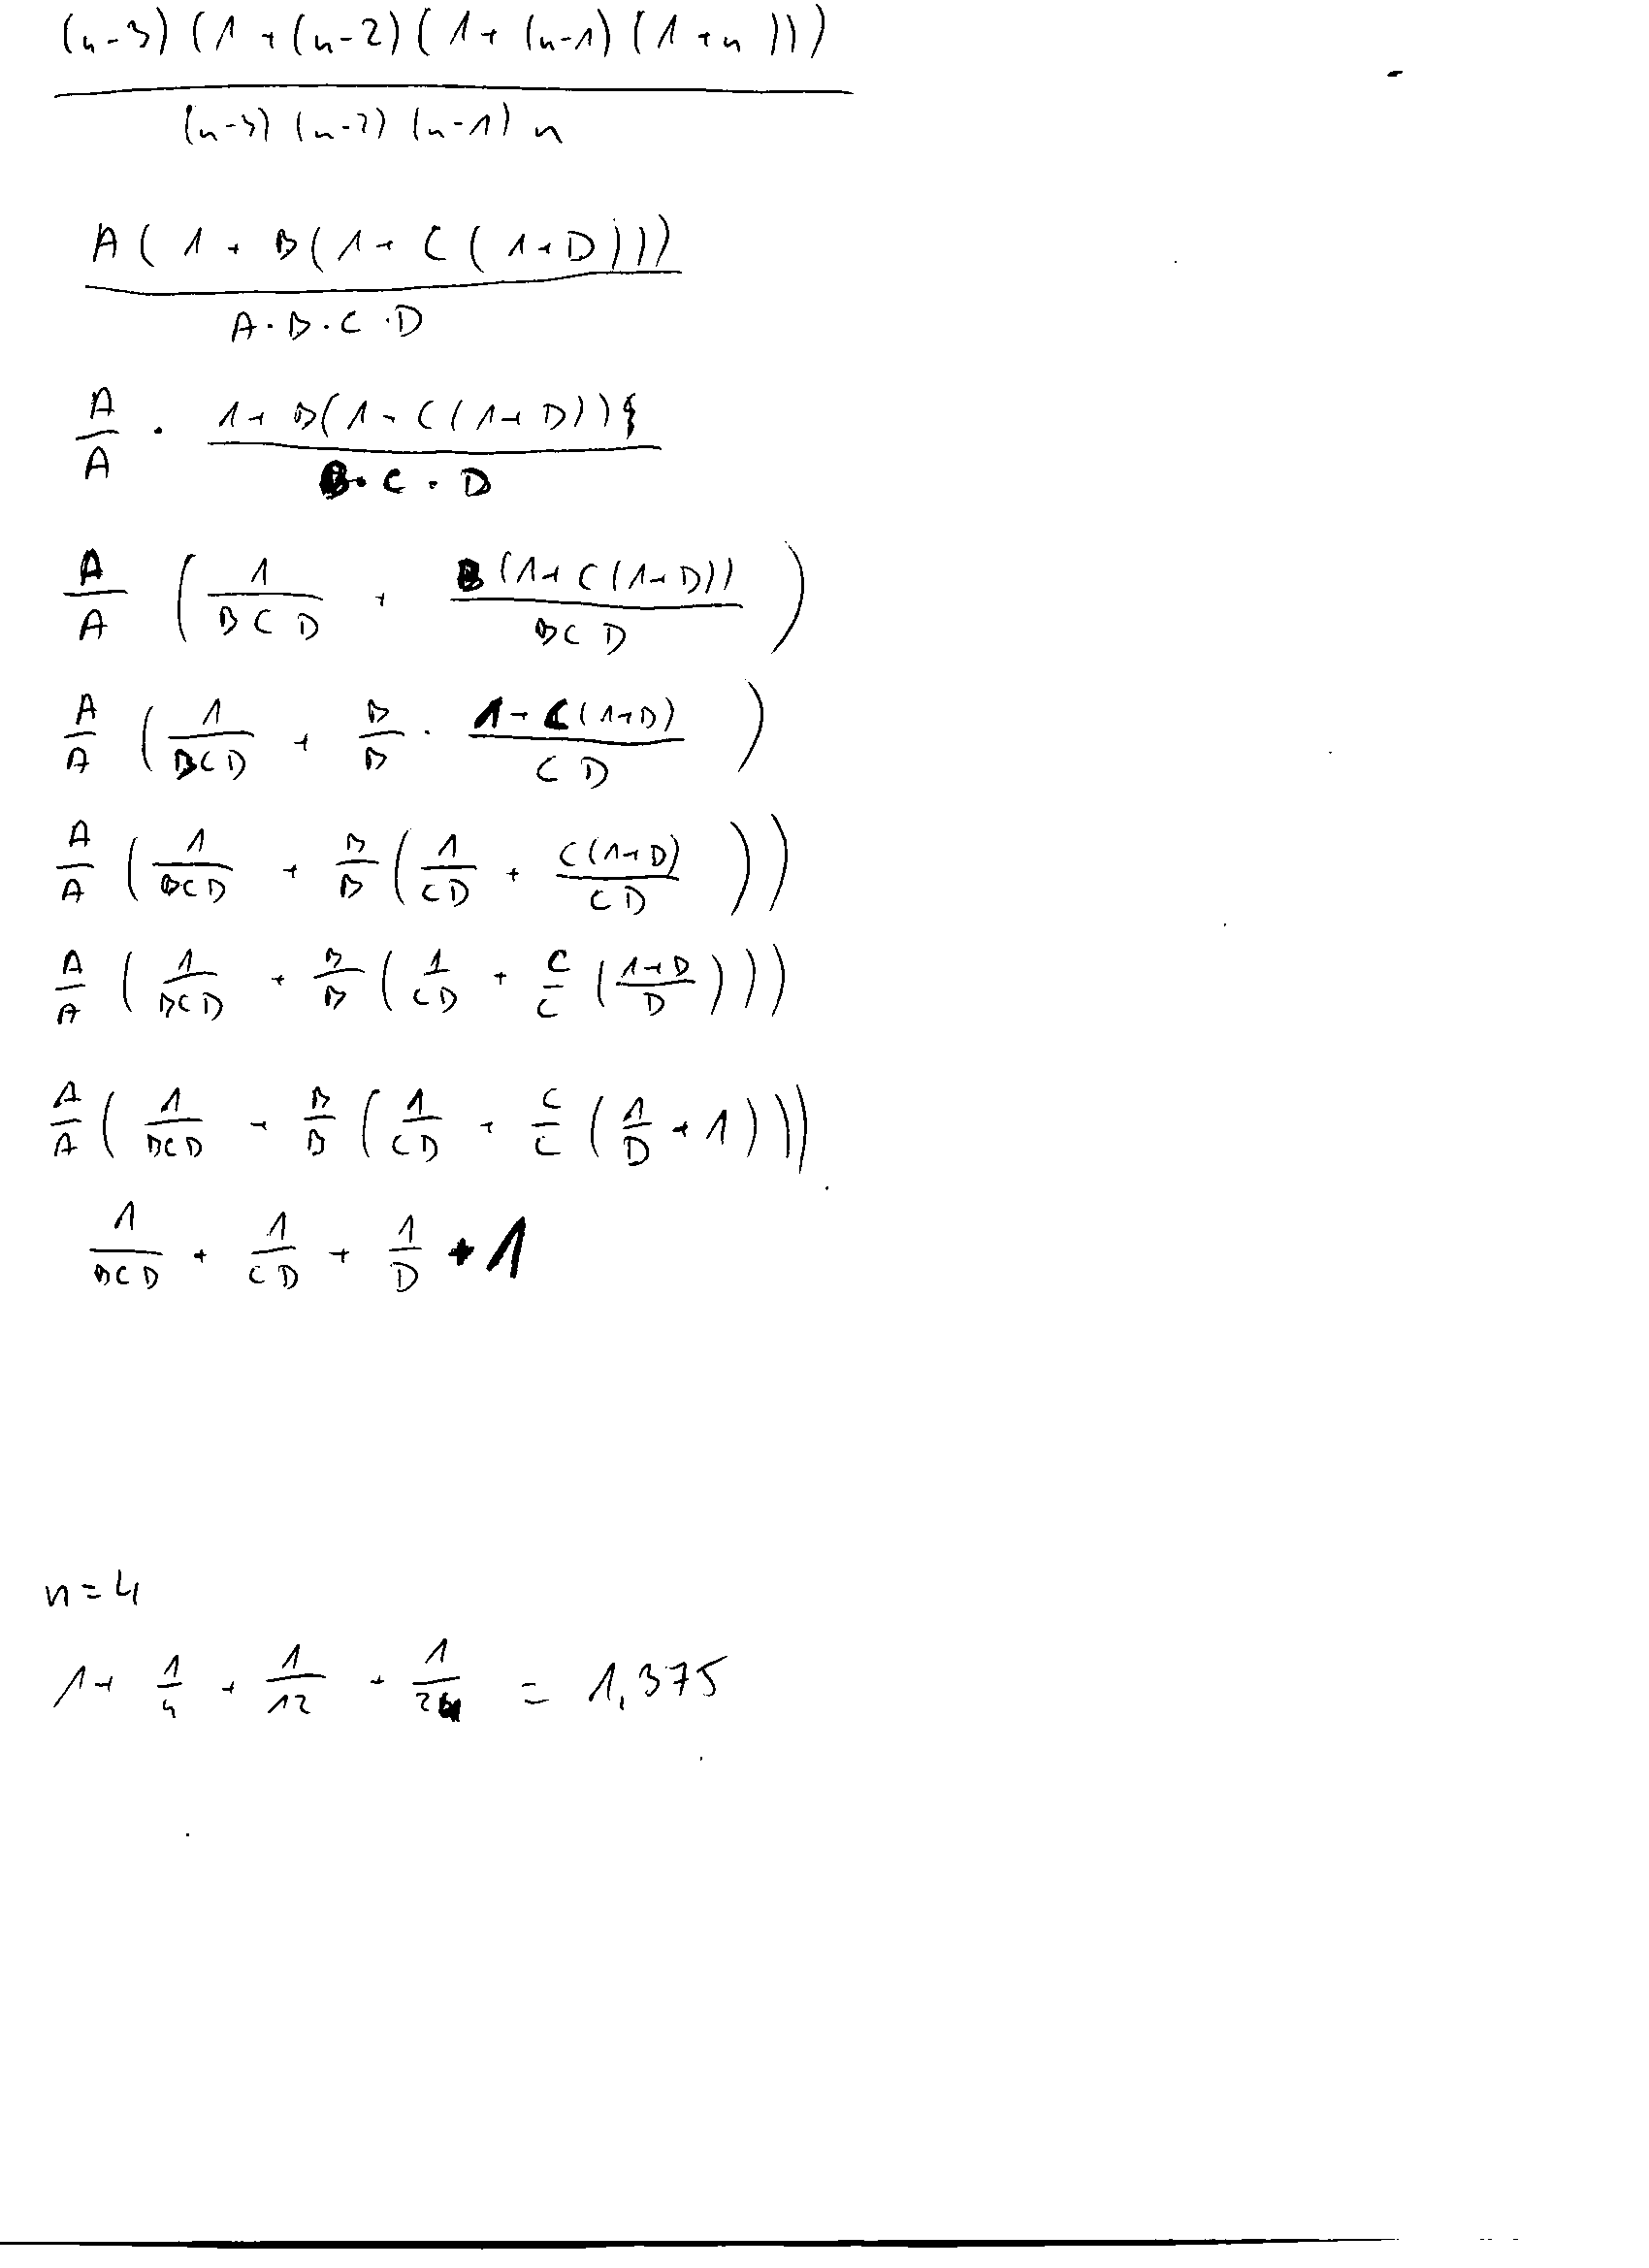 (n-3)(1+(n-2)(1+(n-1)(1+n)))
(n-3)(n-2)(n-1)n
A(1+B(1+C(1+D)))
A·B·C·D
A/A · (1+B(1+C(1+D)))/(B·C·D)
A/A (1/BCD + B(1+C(1+D))/BCD)
A/A (1/BCD + B/B · (1+C(1+D))/CD)
A/A (1/BCD + B/B (1/CD + C(1+D)/CD))
A/A (1/BCD + B/B (1/CD + C/C ((1+D)/D)))
A/A (1/BCD + B/B (1/CD + C/C (1/D + 1)))
1/BCD + 1/CD + 1/D + 1
n=4
1 + 1/4 + 1/12 + 1/24 = 1,375